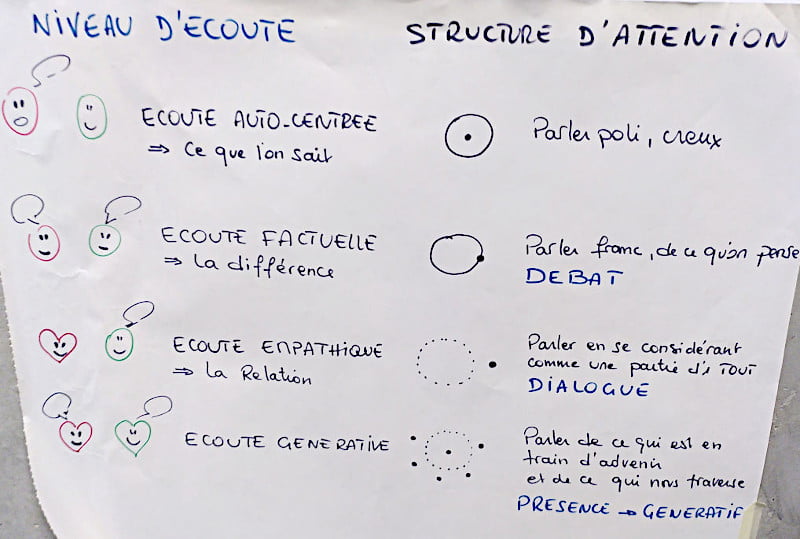 NIVEAU D'ECOUTE
STRUCTURE D'ATTENTION
ECOUTE AUTO-CENTREE
⇒ Ce que l'on sait
Parler poli, creux
ECOUTE FACTUELLE
⇒ La différence
Parler franc, de ce qu'on pense
DEBAT
ECOUTE EMPATHIQUE
⇒ La Relation
Parler en se considérant
comme une partie d'1 TOUT
DIALOGUE
ECOUTE GENERATIVE
Parler de ce qui est en
train d'advenir
et de ce qui nous traverse
PRESENCE → GENERATIF